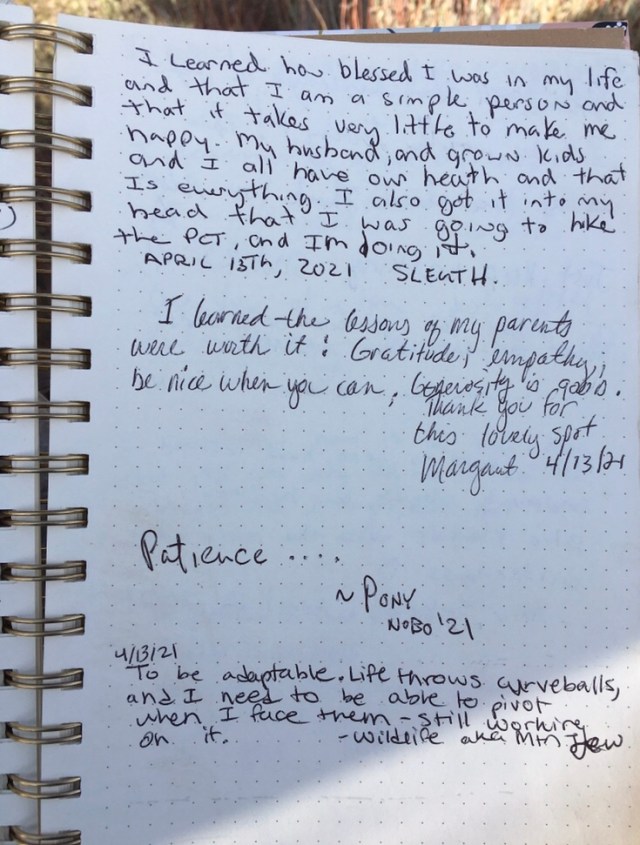 I Learned how blessed I was in my life
and that I am a simple person and
that it takes very little to make me
happy. My husband, and grown kids
and I all have our health and that
Is everything. I also got it into my
head that I was going to hike
the PCT, and Im doing it.
APRIL 15Th, 2021 SLEUTH.
I learned the lessons of my parents
were worth it: Gratitude; empathy;
be nice when you can; Generosity is good.
Thank you for
this lovely spot
Margaut 4/13/21
Patience ....
~ PONY
NOBO '21
4/13/21
To be adaptable. Life throws curveballs,
and I need to be able to pivot
when I face them - still working
on it. - Wildlife aka Mtn Jew